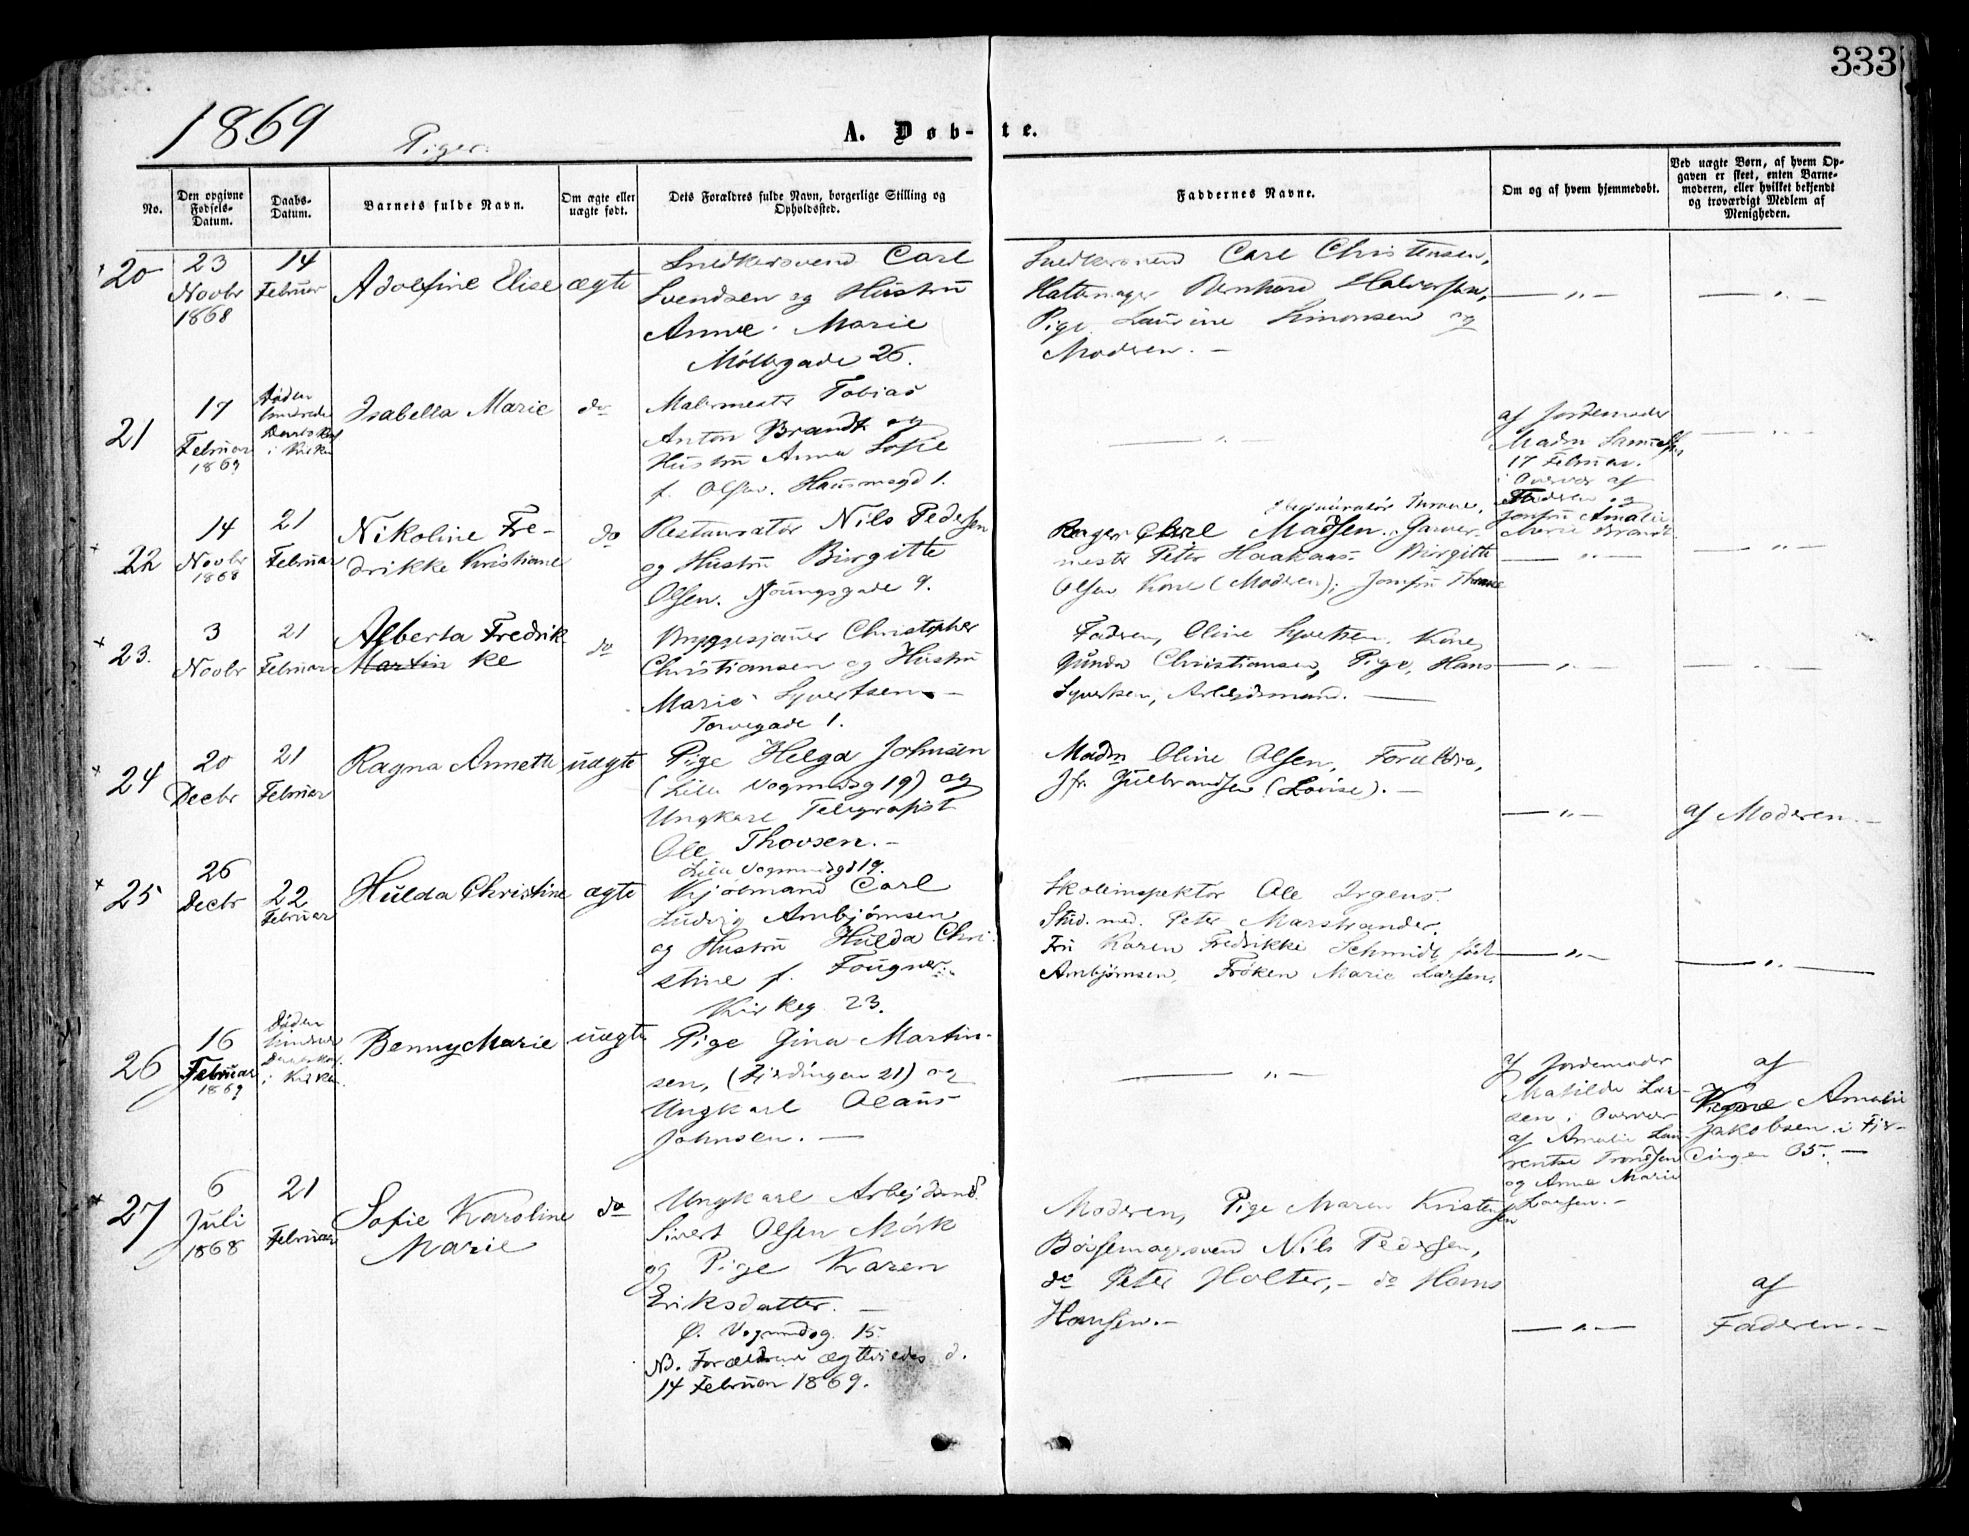 333
1869
Piger.
A. Døb-te.
No.
Den opgivne Fødsels-Datum.
Daabs-Datum.
Barnets fulde Navn.
Om ægte eller uægte født.
Dets Forældres fulde Navn, borgerlige Stilling og Opholdssted.
Faddernes Navne.
Om og af hvem hjemmedøbt.
Ved uægte Børn, af hvem Opgaven er skeet, enten Barnemoderen, eller hvilket bekjendt og troværdigt Medlem af Menigheden.
20
23 Novbr 1868
14 Februar
Adolfine Elise
ægte
Snedkersvend Carl
Svendsen og Hustru
Anne Marie
Møllergade 26.
Snedkersvend Carl Christensen,
Hattemager Bernhard Halvorsen,
Pige Laurine Simonsen og
Moderen. —
— „ —
— „ —
21
17 Februar 1869
Døden hindrede Daabskaf i Kirken
Isabella Marie
do
Malermester Tobias
Anton Brandt og
Hustru Anna Sofie
f. Olsen. Hausmagd 1.
— „ —
af Jordemoder
Madm
17 Februar.
i Overvær af
Faderen og
Jomfru Amalie
Marie Brandt
— „ —
22
14 Novbr 1868
21 Februar
Nikoline Fre-
drikke Kristiane
do
Restauratør Nils Pedersen
og Hustru Birgitte
Olsen. Youngsgade 9.
Thrane,
Carl Madsen. Garver-
mester Peter Haakaas. Birgitte
Olsen Kone (Moderen); Jomfru Thrane
— „ —
— „ —
23.
3 Novbr
21 Februar
Alberta Fredrik
Martin ke
do
Bryggesjauer Christopher
Christiansen og Hustru
Marie Syvertsen —
Torvegade 1.
Fadren, Oline Syvertsen, Kone,
Gunda Christiansen, Pige, Hans
Syvertsen, Arbejdsmand. —
— „ —
— „ —
24
20 Decbr
21 Februar
Ragna Annette
uægte
Pige Helga Johnsen
(Lille Vognmdsg 19) og
Ungkarl Telegrafist
Ole Thovsen. —
Lille Vognmdgd 19.
Madm Oline Olsen, Forældre,
Jfr. Gulbrandsen (Lovise). —
— „ —
af Moderen. —
25
26 Decbr
22 Februar
Hulda Christine
ægte
Kjøbmand Carl
Ludvig Arnbjørnsen
og Hustru Hulda Chri-
stine f. Fougner.
Kirkeg. 23.
Skoleinspektør Ole Irgens.
Stud. med. Peter Marstrander.
Fru Karen Fredrikke Schmidt født
Arnbjørnsen, Frøken Marie Larsen.
— „ —
— „ —
26
16 Februar 1869
Døden hindrede Daabskaf i Kirken.
Benny Marie
uægte
Pige Gina Martin-
sen, (Fjerdingen 21) og
Ungkarl Olaus
Johnsen. —
— „ —
af Jordemoder
Matilde Lar-
sen i Overvær
af Amalie Lau-
rentse Trondsen
og Anne Marie
Larsen. —
af
Pigen Amalie
Jakobsen i Fjer-
dingen 35. —
27
6 Juli 1868
21 Februar
Sofie Karoline
Marie
do
Ungkarl Arbejdsmd.
Sivert Olsen Mørk
og Pige Karen
Eriksdatter. —
Ø. Vognmdsg. 15.
NB. Forældrene ægteviedes d.
14 Februar 1869.
Moderen, Pige Maren Kristensen
Børsemagersvend Nils Pedersen,
do Peter Holter, — do Hans
Hansen. —
— „ —
af
Faderen. —